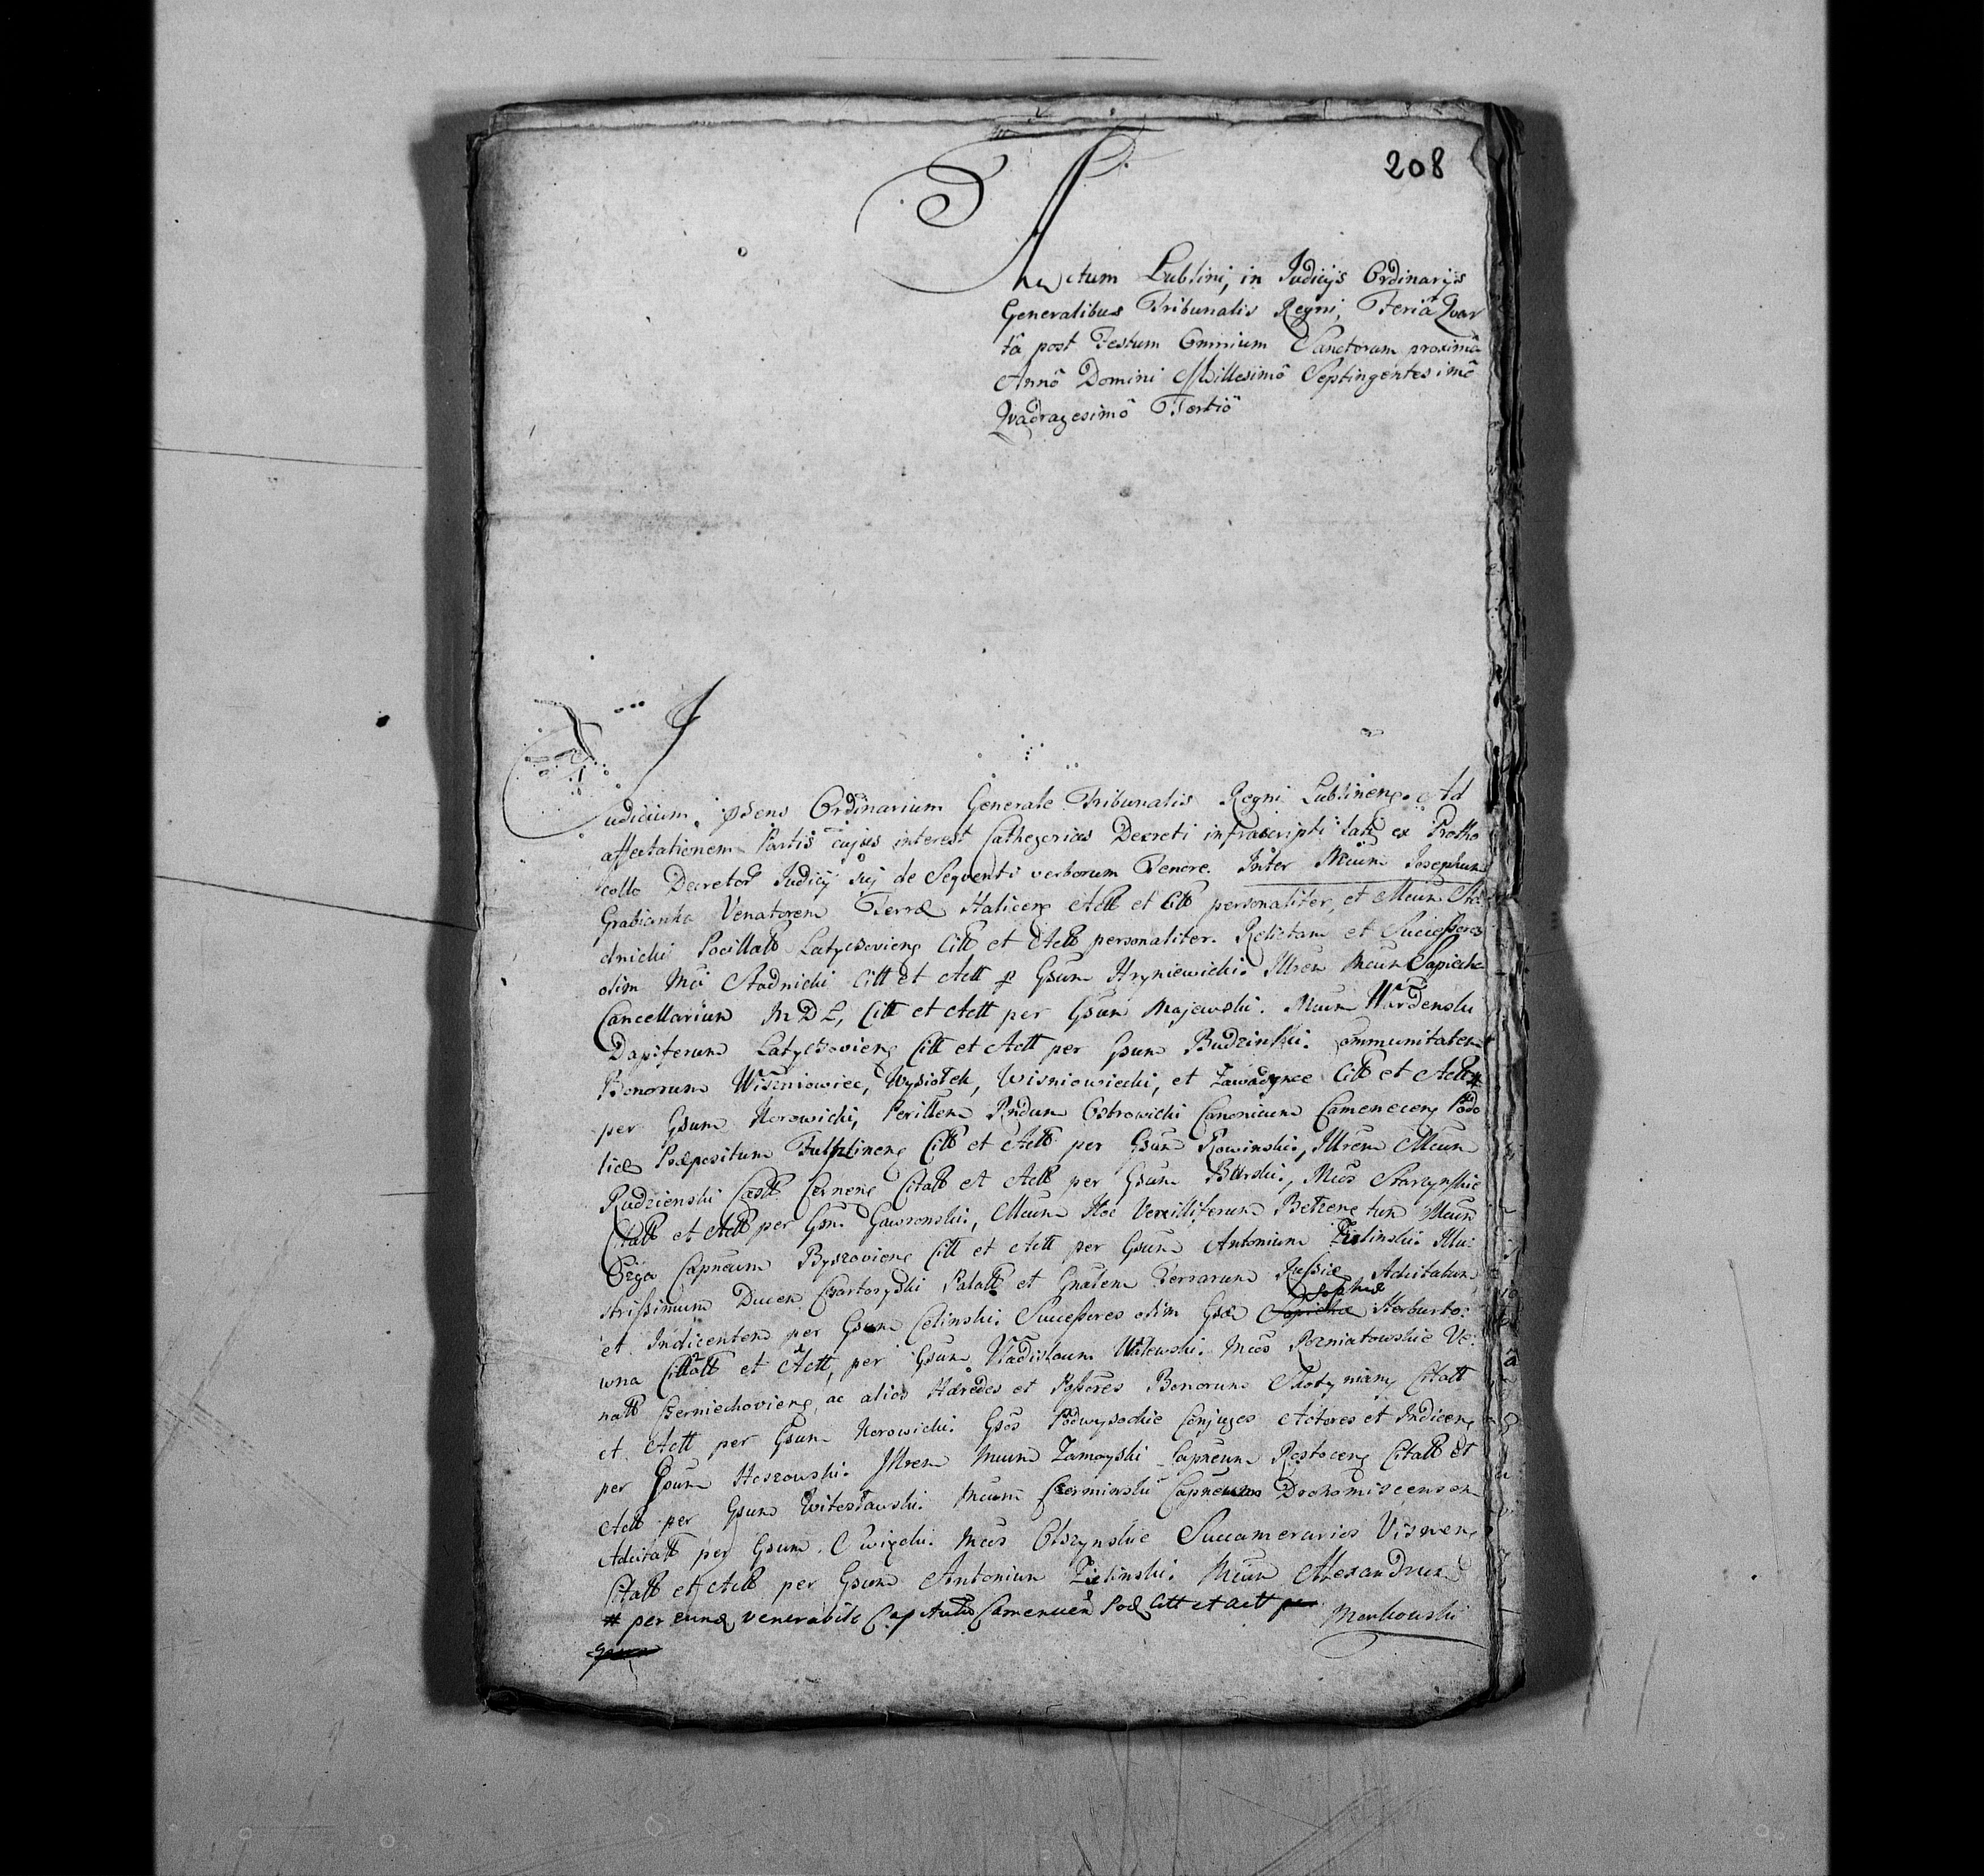 208
Actum Lublini, in Judicijs Ordinarijs
Generalibus Tribunalis Regni, Feriâ Qvar
tâ post Festum Omnium Sanctorum proximâ
Annô Domini Millesimô Septingentesimô
Qvadragesimô Tertiô
Judicium psens Ordinarium Generale Tribunalis Regni Lublinens. Ad
affectationem Partis cujus interest Cathegorias Decreti infrascripti lati ex Protho
collo Decretor Judicij suj de Seqventi verborum Tenore. Inter Mcum Josephum
Grabianka Venatorem Terræ Halicens Actt et Citt personaliter, et Mcum Sta
dnicki Pocillatt Latyczoviens Citt et Actt personaliter. Relictam et Successores
olim Mci Stadnicki Citt et Actt p Gsum Hryniewicki. Illrem Mcum Sapieha
Cancellarium M D L, Citt et Actt per Gsum Majewski. Mcum Wardenski
Dapiferum Latyczoviens Citt et Actt per Gsum Budzinski. Communitatem
Bonorum Wiszniowiec, Wysiołek, Wisniowiecki, et Zawadynce Citt et Actt #
per Gsum Norowicki, Perillem Rndum Ostrowicki Canonicum Camenecens Podo
liæ Præpositum Tulztinens Citt et Actt per Gsum Rowinski, Illrem Mcum
Rudzienski Castt Cernens Citatt et Actt per Gsum Burski, Mcos Starzynskie
Citatt et Actt per Gsm Gawronski, Mcum Noe Vexilliferum Betzens tum Mcum
Ozga Capneum Byszoviens Citt et Actt per Gsum Antonium Zielinski. Illu:
strissimum Ducem Czartoryski Palatt et Gnalem Terrarum Russiæ Adcitatum
et Indicentem per Gsum Celinski. Successores olim Gsæ Sophiæ Herburto:
wna Citatt et Actt, per Gsum Vladislaum Walewski. Mcos Pozniatowskie Ve:
natt Czerniechoviens, ac alios Hæredes et Possores Bonorum Citatt
et Actt per Gsum Norowicki. Gsos Podwysockie Conjuges Actores et Indicens
per Gsum Hoszowski. Illrem Mcum Zamoyski Capneum Rostocens Citatt et
Actt per Gsum Witosławski. Mcum Czerminski Capneum Drohomiscensem
Adcitatt per Gsum Cwizeki. Mcos Olszynskie Succamerarios Visnens
Citatt et Actt per Gsum Antonium Zielinski. Mcum Alexandrum
# per eund venerabile Capitulu Camenecen Pod Citt et Actt Markowski